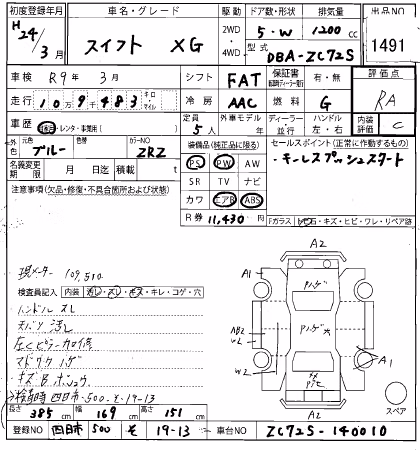 初度登録年月 車名・グレード 駆動 ドア数・形状 排気量 出品NO
H24年3月 スイフト XG 2WD 4WD 5・W 1200cc 1491
型式 DBA-ZC72S
車検 R9年 3月 シフト FAT 保証書 有・無 評価点
走行 10万9千483 キロ・マイル 冷房 AAC 燃料 G RA
車歴 自家・レンタ・事業用( ) 定員 5人 外車モデル 年 ディーラー・並行 ハンドル 左・右 内装評価 C
外色 元色 ブルー 色替 カラーNO ZRZ 装備品(純正品に限る) セールスポイント(正常に作動するもの)
名義変更期限 月 日 迄 積載 t PS PW AW ・キーレスプッシュスタート
注意事項(欠品・修復・不具合箇所および状態) SR TV ナビ
カワ エアB ABS
R券 11,430円 Fガラス 石・キズ・ヒビ・ワレ・リペア跡
現メーター 109,510
検査員記入 内装 汚レ・スレ・キズ・キレ・コゲ・穴
ハンドルスレ
天バリ 汚レ
左Cピラー
キズ
検時 四日市 500 そ 19-13
A2
A1
W2
W2
A1
A2
スペア
長さ 385cm 幅 169cm 高さ 151cm
登録NO 四日市 500 そ 19-13 車台NO ZC72S-140010